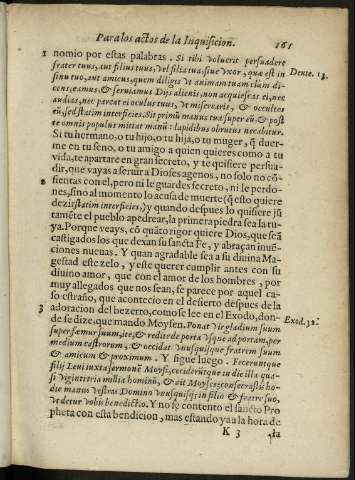 Para los actos de la Inquisicion. 161
1 nomio por estas palabras. Si tibi voluerit persuadere
frater tuus, aut filius tuus, vel filia tua, siue vxor, quæ est in Deute. 13.
sinu tuo, aut amicus, quem diligis vt animam tuam clam di-
cens, eamus, & seruiamus Dijs alienis, non acquiescas ei, nec
audias, nec parcat ei oculus tuus, vt miserearis, & occultes
eũ, sed statim interficies. Sit primũ manus tua super eũ, & post
te omnis populus mittat manũ: lapidibus obrutus necabitur.
Si tu hermano, o tu hijo, o tu hija, o tu muger, q̃ duer-
me en tu seno, o tu amigo a quien quieres como a tu
vida, te apartare en gran secreto, y te quisiere persua-
dir, que vayas a seruir a Dioses agenos, no solo no cõ-
2 sientas con el, pero ni le guardes secreto, ni le perdo-
nes, sino al momento lo acusa de muerte (q̃ esto quiere
dezir statim interficies,) y quando despues lo quisiere jũ
tamẽte el pueblo apedrear, la primera piedra sea la tu-
ya. Porque veays, cõ quãto rigor quiere Dios, que seã
castigados los que dexan su sancta Fe, y abraçan inuẽ-
ciones nueuas. Y quan agradable sea a su diuina Ma-
gestad este zelo, y este querer cumplir antes con su
diuino amor, que con el amor de los hombres, por
muy allegados que nos sean, se parece por aquel ca-
so estraño, que acontecio en el desierto despues de la
3 adoracion del bezerro, como se lee en el Exodo, don- Exod. 32.
de se dize, que mando Moysen. Ponat vir gladium suum
super fæmur suum, ite, & redite de porta vsque ad portam, per
medium castrorum, & occidat vnusquisque fratrem suum
& amicum & proximum. Y sigue luego. Feceruntque
filij Leui iuxta sermonẽ Moysi, cecideruntque in die illa qua-
si vigintitria millia hominũ, & ait Moyses: consecrastis ho-
die manus vestras Domino vnusquisq; in filio & fratre suo,
vt detur vobis benedictio. Y no se contento el sancto Pro
pheta con esta bendicion, mas estando ya a la hora de
K 3 la